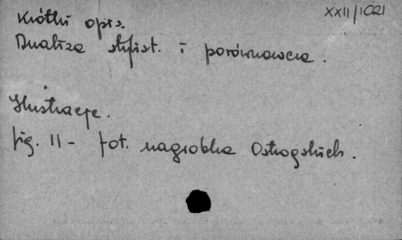 XXII/1021
Krótki opis.
Analiza stylist. i porównawcza.
Ilustracje.
fig. 11 - fot. nagrobka Ostrogskich.